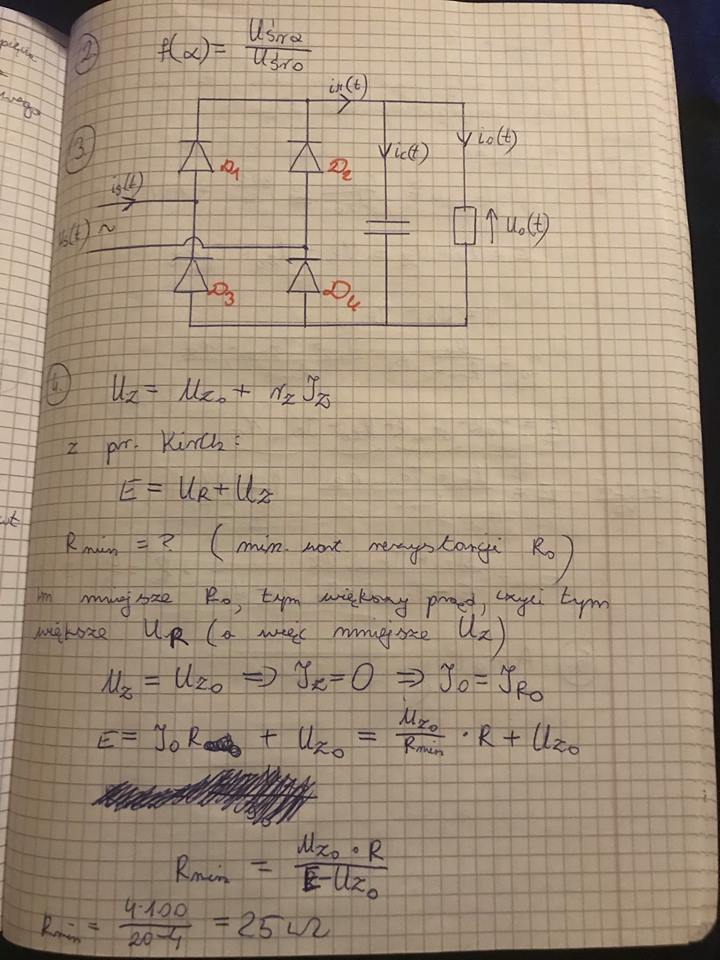 2. f(α) = Uśrα / Uśr0
3.
ir(t)
is(t)
ic(t)
io(t)
D1 D2
us(t) ~
Uo(t)
D3 D4
4. Uz = Uz0 + rz Iz
z pr. Kirch:
E = UR + Uz
Rmin = ? (min. wart rezystancji Ro)
im mniejsze Ro, tym większy prąd, czyli tym
większe UR (a więc mniejsze Uz)
Uz = Uz0 => Iz = 0 => I0 = IR0
E = I0 R + Uz0 = Uz0 / Rmin · R + Uz0
Rmin = Uz0 · R / E - Uz0
Rmin = 4·100 / 20-4 = 25 Ω